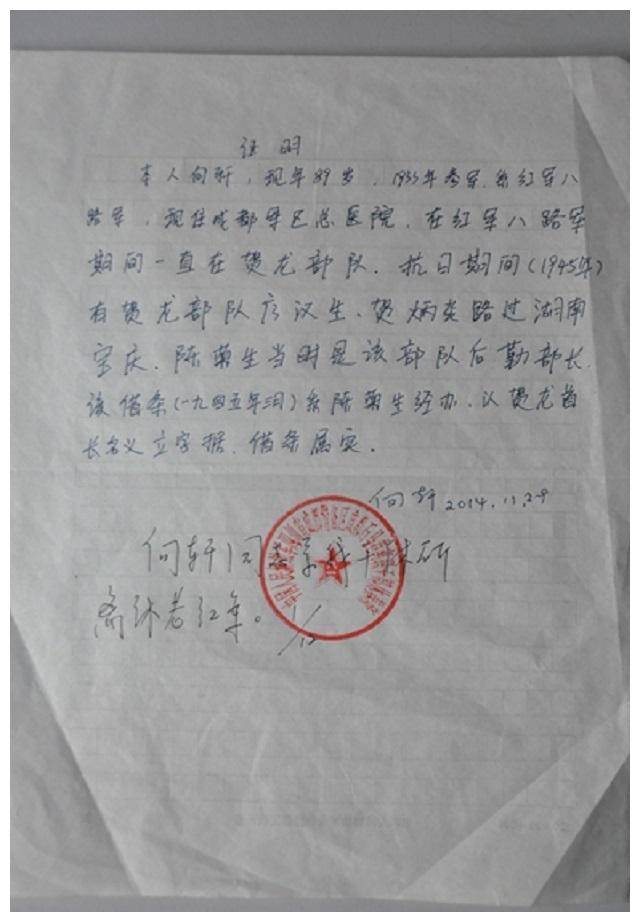 证明
本人向轩,现年89岁,1935年参军,系红军八
路军,现住成都军区总医院,在红军八路军
期间一直在贺龙部队.抗日期间(1945年)
有贺龙部队廖汉生、贺炳炎路过湖南
宝庆.陈菊生当时是该部队后勤部长.
该借条(一九四五年三月)系陈菊生经办.以贺龙首
长名义立字据.借条属实.
向轩 2014.11.29
向轩同志系我干休所
离休老红军。
1/12